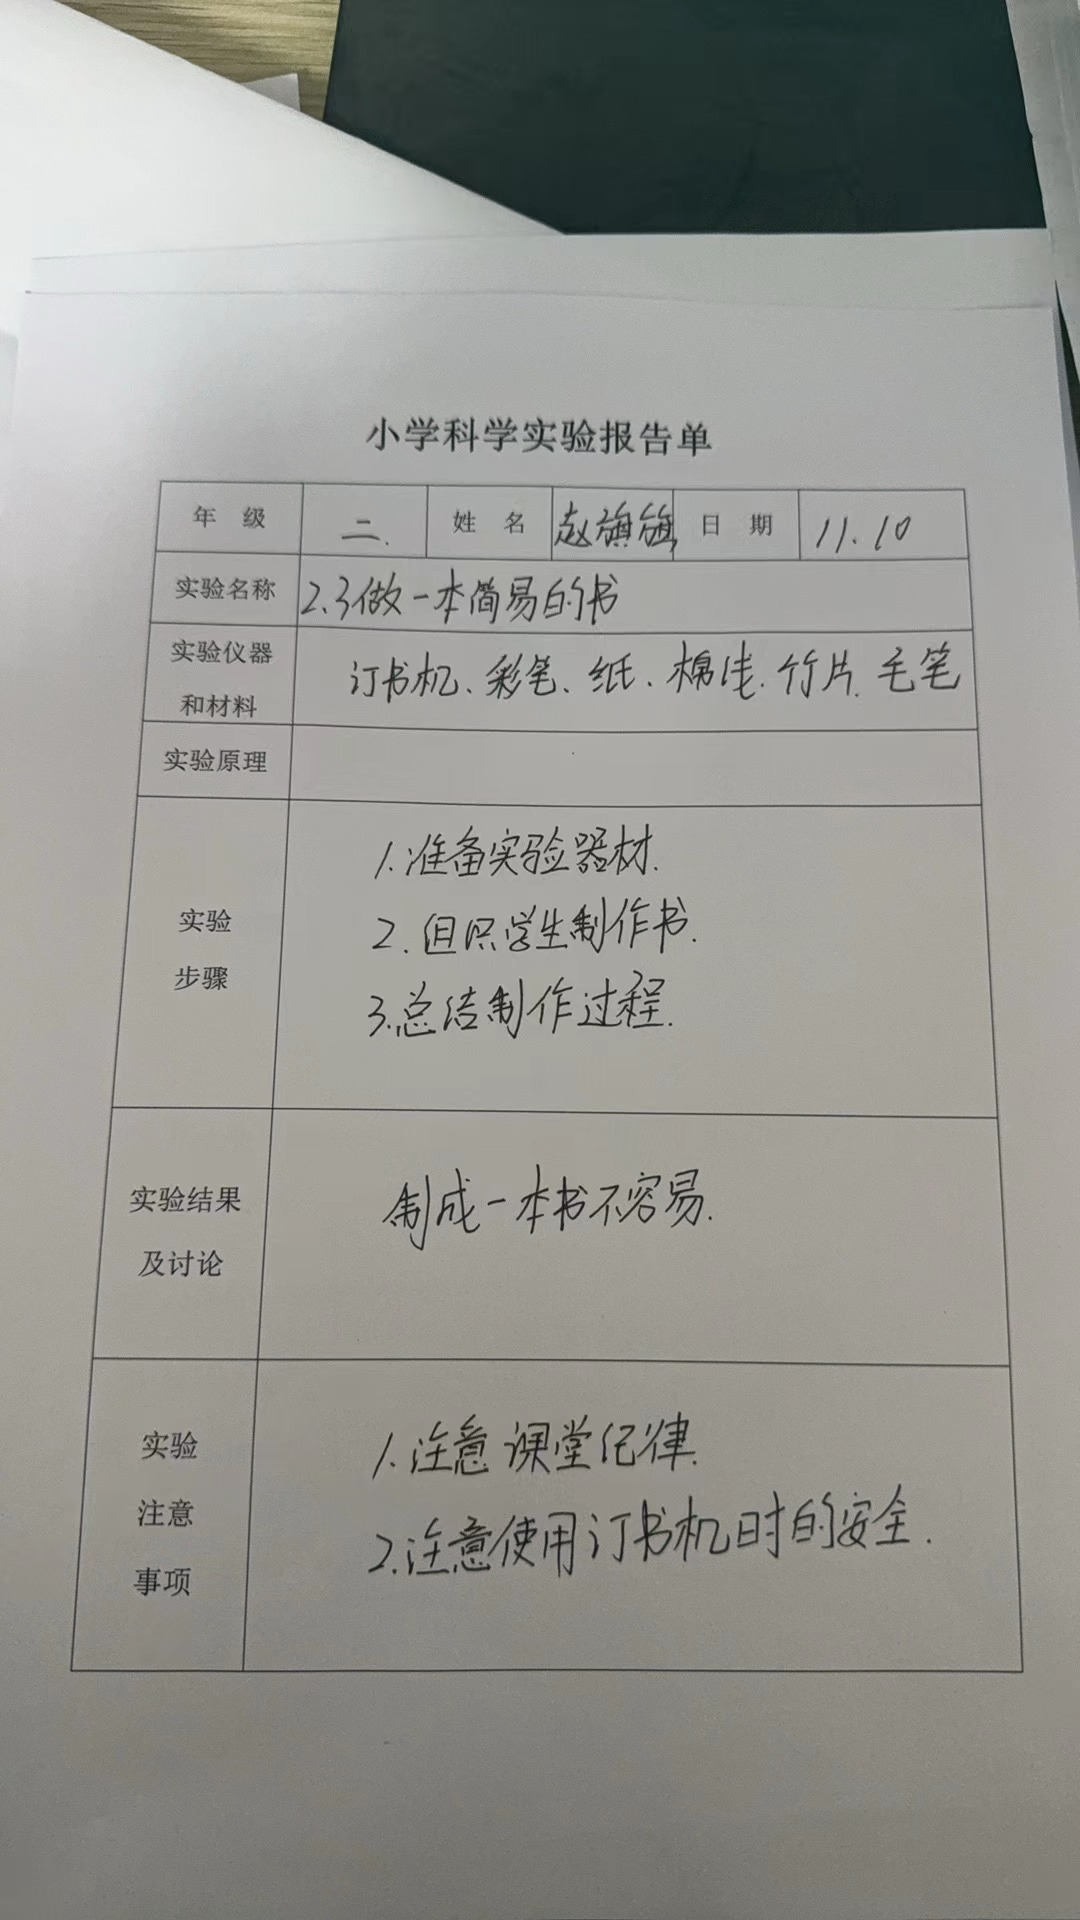 小学科学实验报告单
年 级 二. 姓 名 赵旗 日 期 11.10
实验名称 2.3做一本简易的书
实验仪器和材料 订书机、彩笔、纸、棉线.竹片.毛笔
实验原理
实验步骤
1.准备实验器材.
2.组织学生制作书.
3.总结制作过程.
实验结果及讨论
制成一本书不容易.
实验注意事项
1.注意课堂纪律.
2.注意使用订书机时的安全.